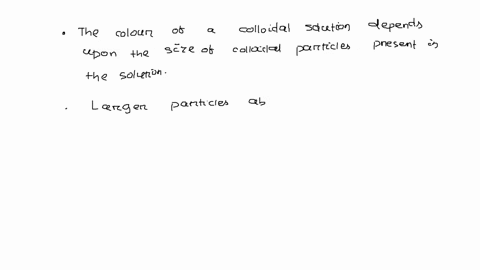 • The colour of a colloidal solution depends
upon the size of colloidal particles present in
the solution.
• Larger particles ab